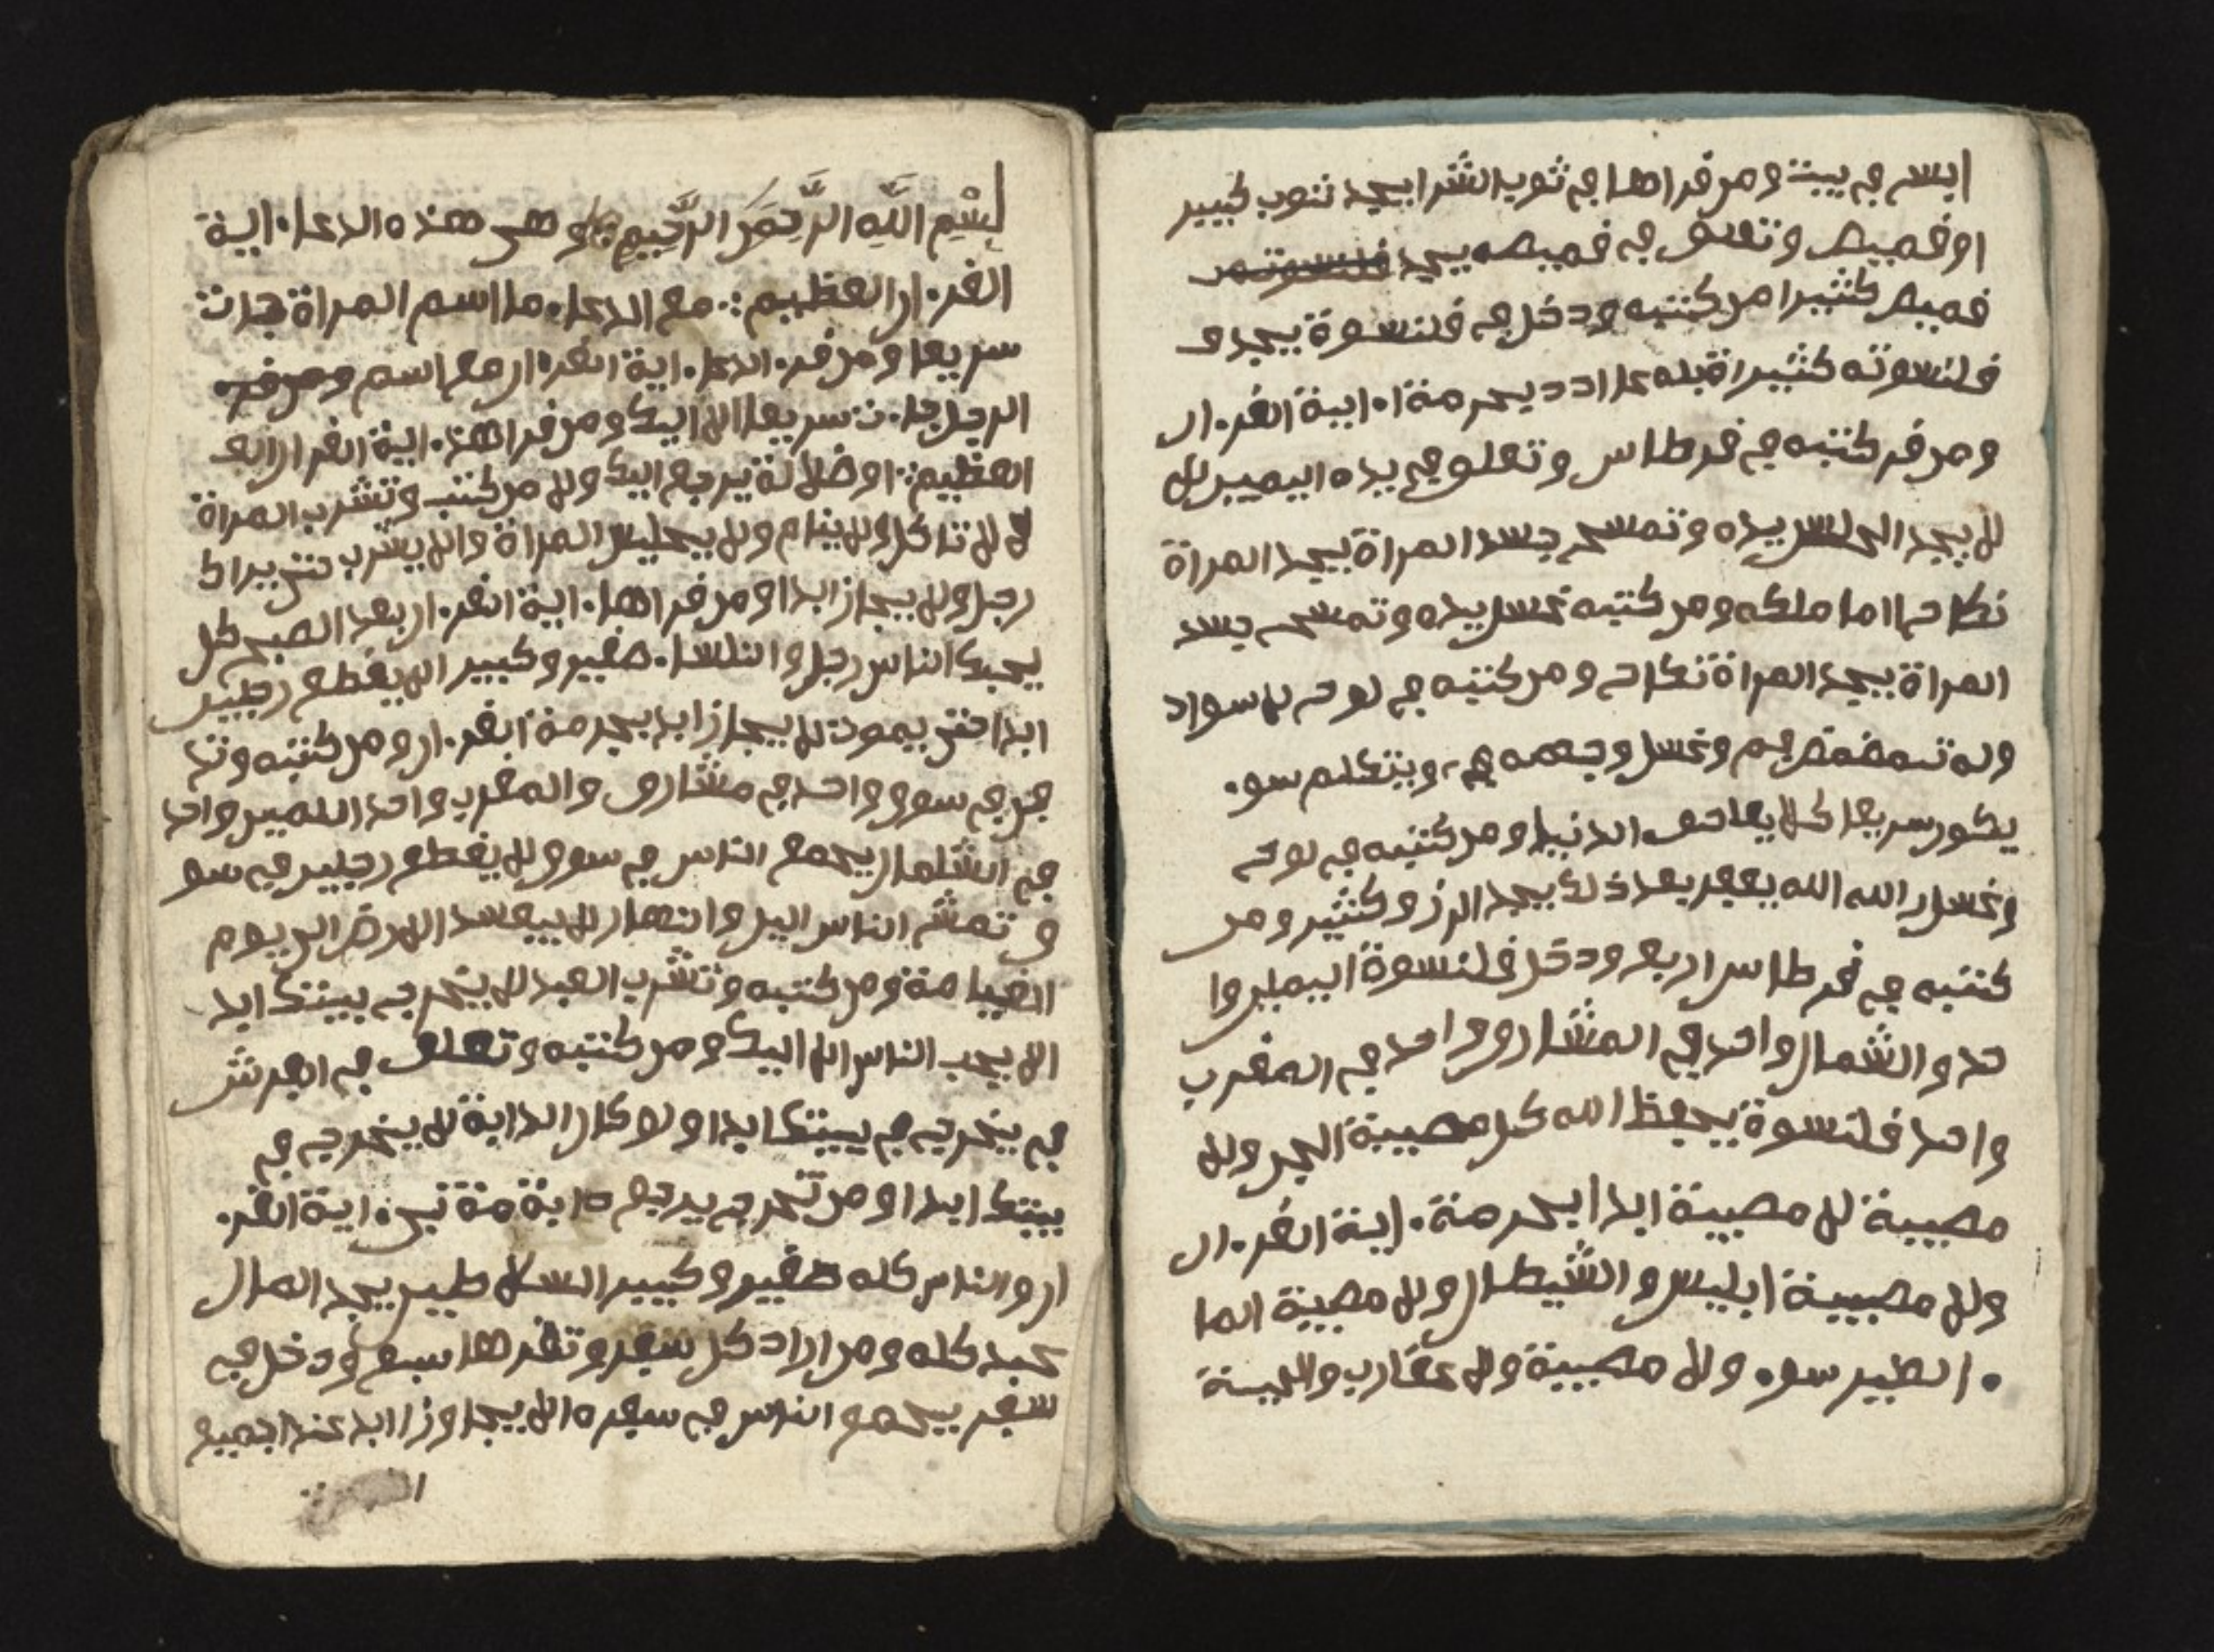 ابسم في بيت ومن قراها في ثوب الشرا يجد ثوب كبير
او قميص وتعلق في قميصه يجد
قميص كثيرا من كتبه ودخل في قلنسوة يجد و
قلنسوته كثيرا قبله عدد يحرمة ا. اية القر.ان
ومن قر كتبه في قرطاس وتعلق في يده اليمين لا
لا يجد الى لس يده وتمسح جسد المراة يجد المراة
نكاح اما ملكه ومن كتبه غسل يده وتمسح جسد
المراة يجد المراة نكاح ومن كتبه في لوح لا سواد
وله تمضمض فم وغسل وجهه ويتكلم سو.
يكون سريعا كلا يلحق الدنيا ومن كتبه في لوح
وغسل الله الله يفقر بعد ذلك يجد الرزق كثير ومن
كتبه في قرطاس اربع ودخل قلنسوة اليمين وا
حد والشمال واحد في المشارق واحد في المغرب
واحد قلنسوة يحفظ الله كل مصيبة الجن ولا
مصيبة لا مصيبة ابدا بحرمة. اية القر.ان
ولا مصيبة ابليس والشيطان ولا مصيبة الما
. الطير سو. ولا مصيبة ولا عقارب والحية
بسم الله الرحمن الرحيم وهي هذه الدعا. اية
القر.ان العظيم مع الدعا. ما اسم المراة جات
سريعا ومن قر. الدعا. اية القر.ان مع اسم ومن قر.
الرجل جا.ت سريعا الا اليك ومن قرا هذ. اية القران الع
العظيم او ضلالة يرجع اليك ولا من كتب وتشرب المراة
لا تاكل ولا ينام ولا يجلس المراة ولا يشرب حتى يراك
رجل ولا يجاز ابدا ومن قراها. اية القر.ان بعد الصبح كل
يحبك الناس رجل والنسا. صغير وكبير لا يقطع رجلين
ابدا حتى يموت لا يجاز ابد بحرمة القر.ان ومن كتبه وتد
فن في سوق واحد في مشارق والمغرب واحد اليمين واحد
في الشلمان يجمع الناس في سوق لا يقطع رجلين في سو
ق تمش الناس اليل والنهار لا يفسد الارض الى يوم
القيامة ومن كتبه وتشرب العبد لا يخرج بيتك ابد
الا يحب الناس الا اليك ومن كتبه وتعلق في العرش
في يخرج في بيتك ابدا ولو كان الدابة لا يخرج في
بيتك ابدا ومن تخرج يرجع دابة اية القر.
ان والناس كله صغير وكبير السلاطين يجد المال
عبد كله ومن اراد كل سفر وتقرها سبع ودخل في
سفر يجمع الناس في سفره الا يجاوز ابد عند الجميع